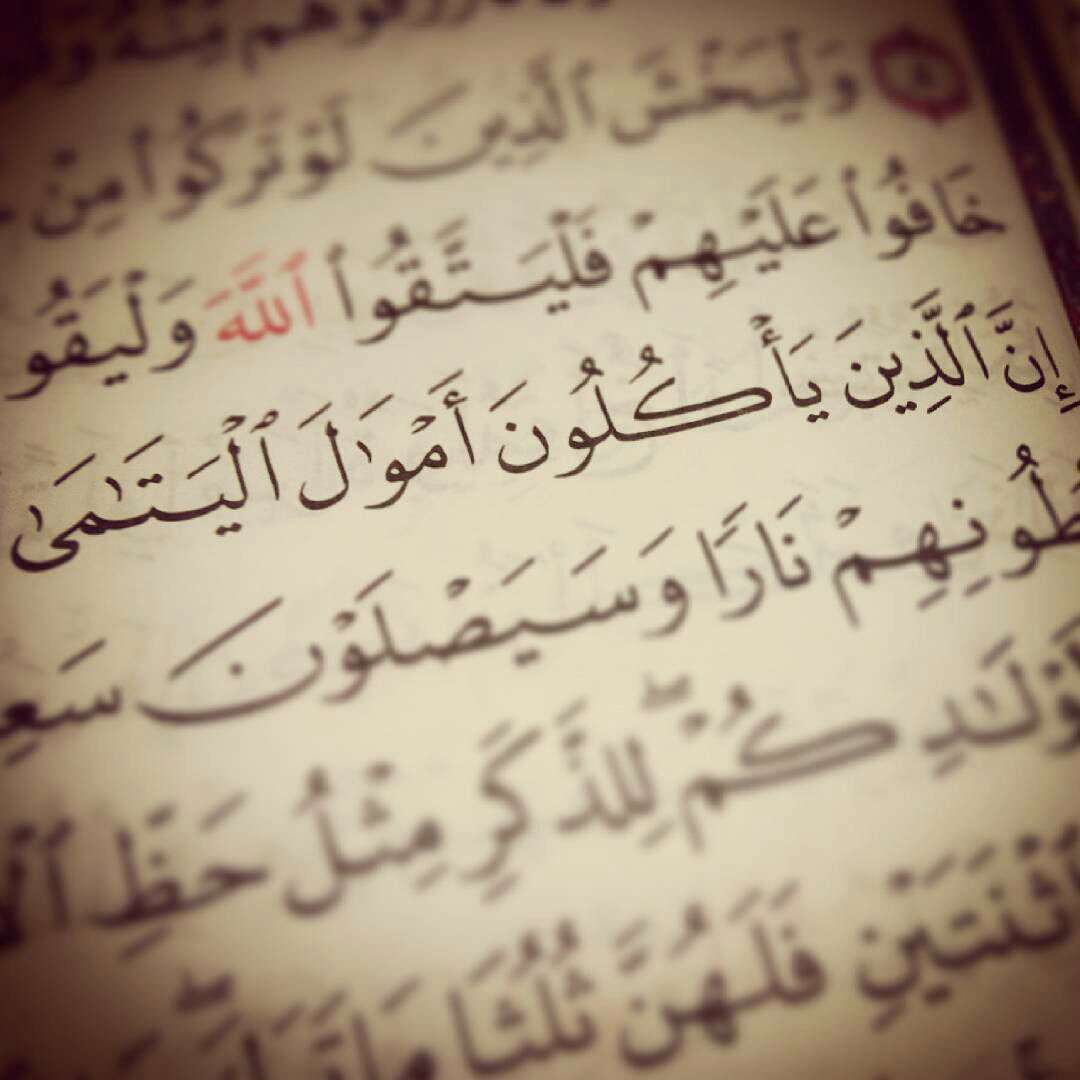 وَلْيَخْشَ ٱلَّذِينَ لَوْ تَرَكُوا۟ مِنْ
خَافُوا۟ عَلَيْهِمْ فَلْيَتَّقُوا۟ ٱللَّهَ وَلْيَقُو
إِنَّ ٱلَّذِينَ يَأْكُلُونَ أَمْوَٰلَ ٱلْيَتَٰمَىٰ
طُونِهِمْ نَارًا وَسَيَصْلَوْنَ سَعِ
وْلَٰدِكُمْ ۖ لِلذَّكَرِ مِثْلُ حَظِّ
ٱثْنَتَيْنِ فَلَهُنَّ ثُلُثَا مَا